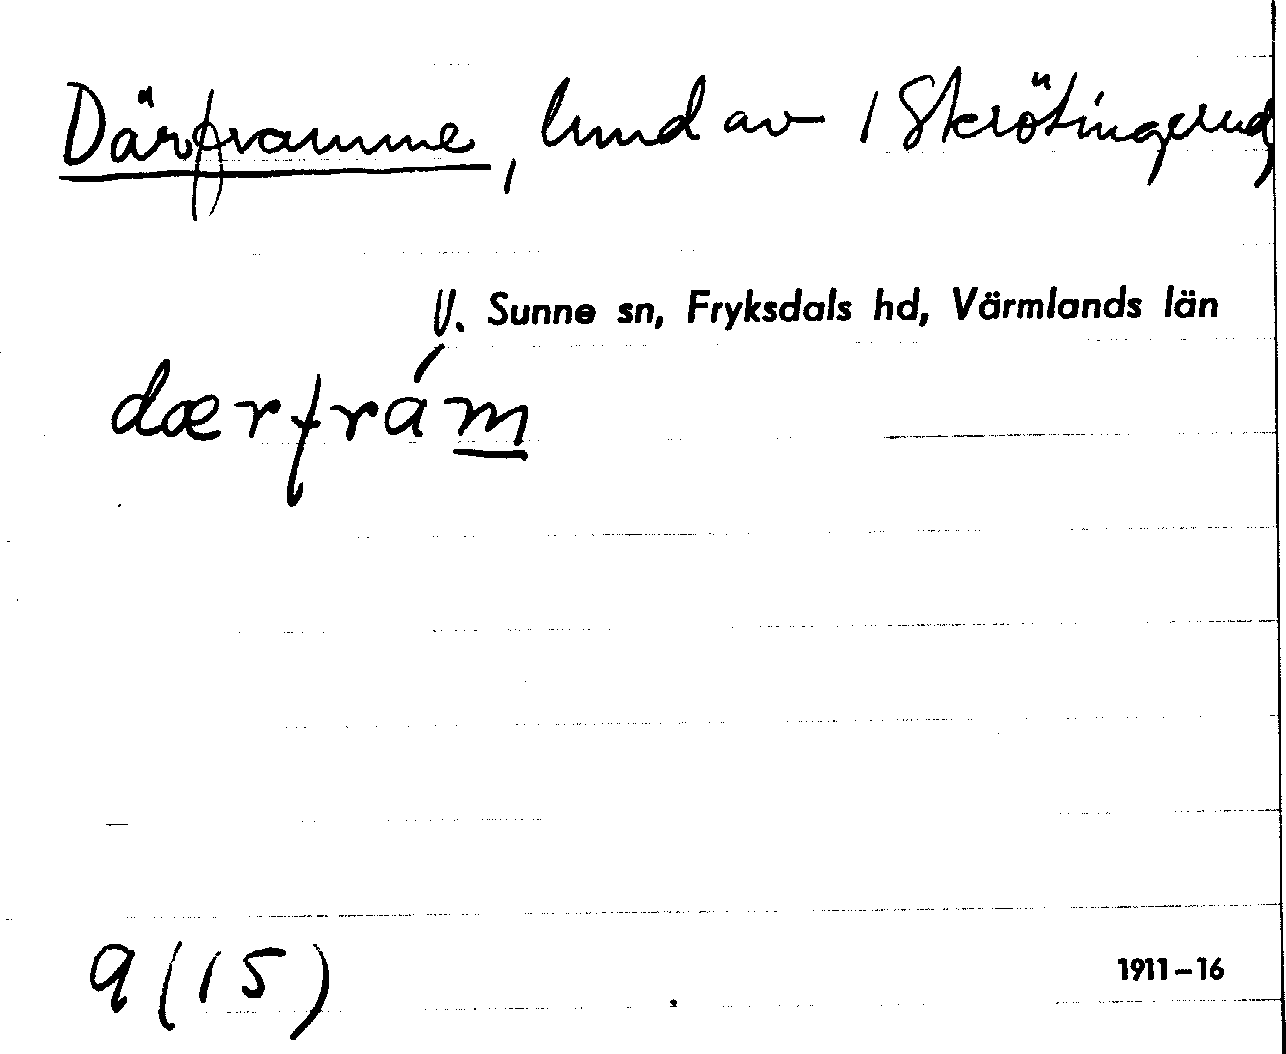 Därframme, lund av 1 Skrötingerud,
V. Sunne sn, Fryksdals hd, Värmlands län
dærfrám
9 (15)
1911-16